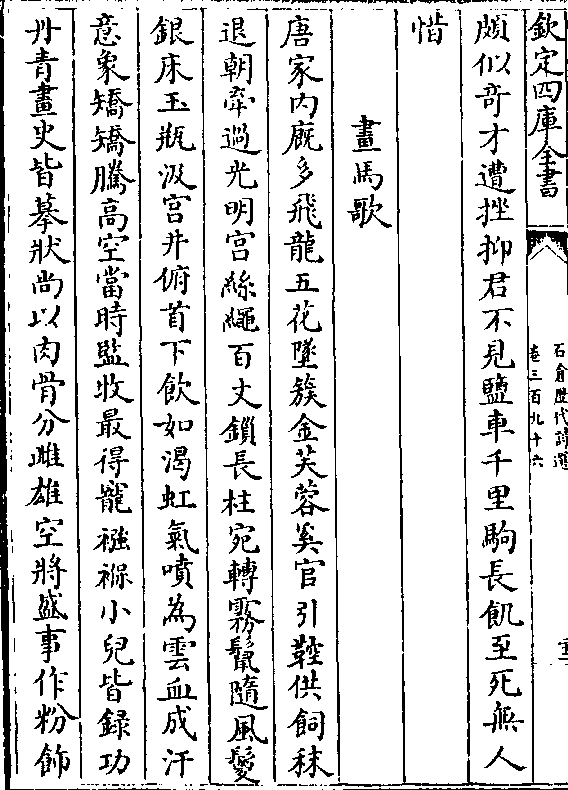 欽定四庫全書
石倉歷代詩選
卷三百九十六
頗似奇才遭挫抑君不見鹽車千里駒長飢至死無人
惜
畫馬歌
唐家内廐多飛龍五花墜簇金芙蓉奚官引鞚供飼秣
退朝牽過光明宮絲繩百丈鎖長柱宛轉霧鬛隨風鬉
銀床玉瓶汲宮井俯首下飲如渴虹氣噴為雲血成汗
意象矯矯騰高空當時監牧最得寵襁褓小兒皆錄功
丹青畫史皆摹狀尚以肉骨分雌雄空將盛事作粉飾